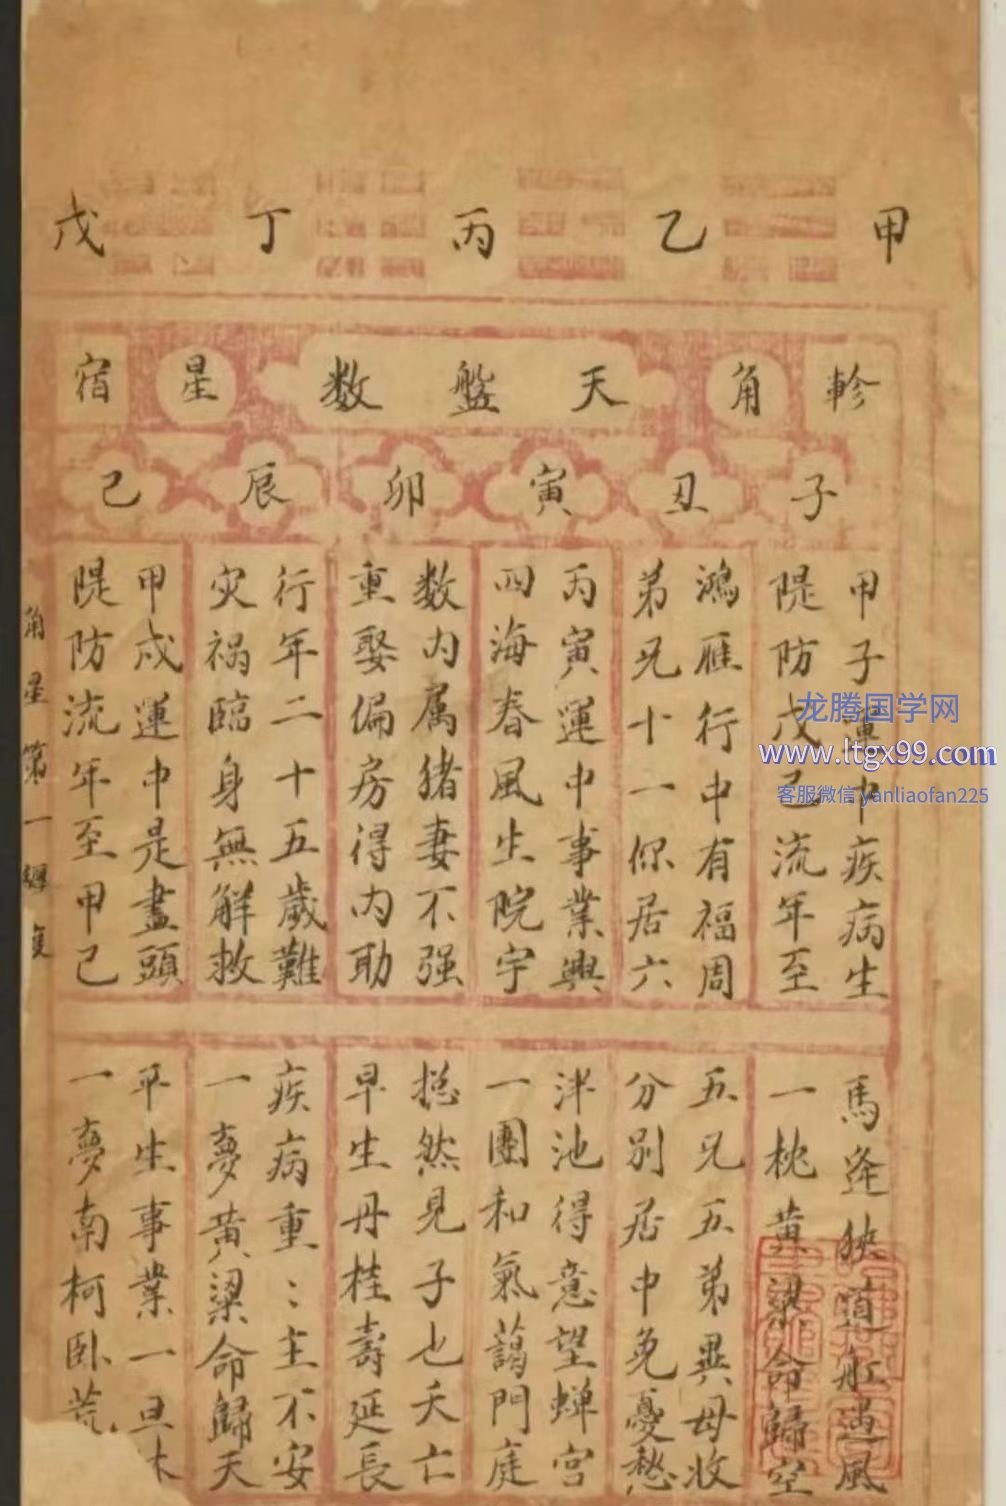 甲 乙 丙 丁 戊
軫 角 天盤数 星 宿
子 丑 寅 卯 辰 己
甲子運中疾病生
隄防戊己流年至
鴻雁行中有福周
弟兄十一你居六
丙寅運中事業興
四海春風生院宇
数内属猪妻不强
重娶偏房得内助
行年二十五歲難
灾禍臨身無解救
甲戍運中是盡頭
隄防流年至甲己
馬逢狹道舡遇風
一枕黄粱命歸空
五兄五弟異母收
分别居中免憂愁
泮池得意望蟬宫
一團和氣藹門庭
摠然見子也夭亡
早生丹桂壽延長
疾病重〻主不安
一夢黄粱命歸天
平生事業一旦
一夢南柯卧荒
角星第一
龙腾国学网
www.ltgx99.com
客服微信yanliaofan225